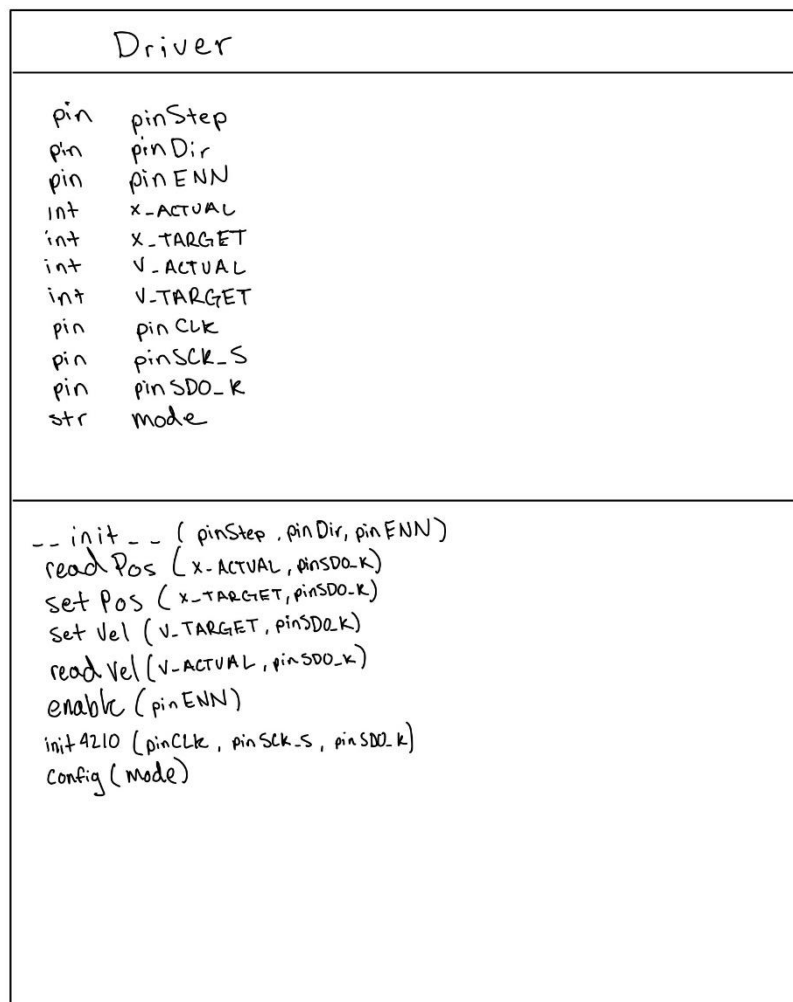 Driver
pin pinStep
pin pinDir
pin pinENN
int X_ACTUAL
int X_TARGET
int V_ACTUAL
int V_TARGET
pin pinCLK
pin pinSCK_S
pin pinSDO_K
str mode
__init__ (pinStep, pinDir, pinENN)
readPos (X_ACTUAL, pinSDO_K)
setPos (X_TARGET, pinSDO_K)
setVel (V_TARGET, pinSDO_K)
readVel (V_ACTUAL, pinSDO_K)
enable (pinENN)
init4210 (pinCLK, pinSCK_S, pinSDO_K)
config (mode)